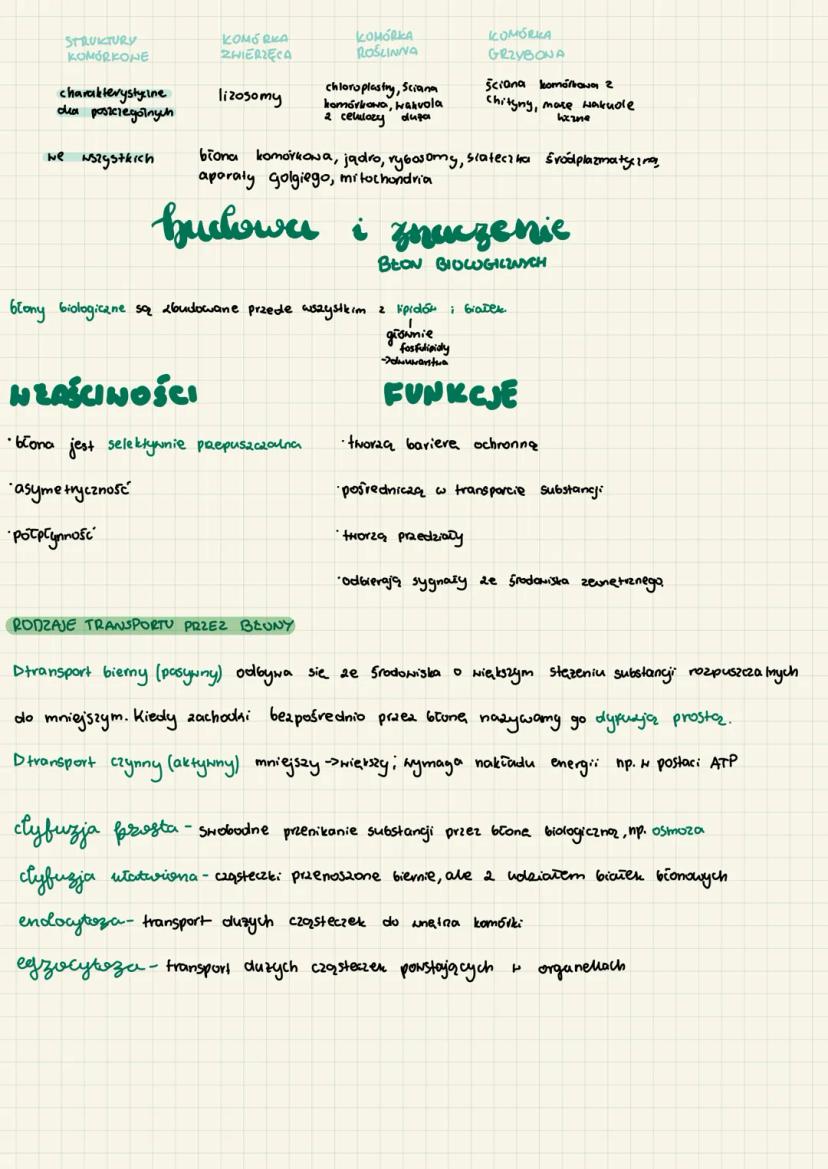 STRUKTURY KOMÓRKOWE
KOMÓRKA ZWIERZĘCA
KOMÓRKA ROŚLINNA
KOMÓRKA GRZYBOWA
charakterystyczne
dla poszczególnych
lizosomy
chloroplasty, ściana
komórkowa, wakuola
z celulozy duża
ściana komórkowa z
chityny, małe wakuole
liczne
we wszystkich
błona komórkowa, jądro, rybosomy, siateczka śródplazmatyczna,
aparaty golgiego, mitochondria
budowa i znaczenie
BŁON BIOLOGICZNYCH
błony biologiczne są zbudowane przede wszystkim z lipidów i białek.
głównie
fosfolipidy
->dwuwarstwa
WŁAŚCIWOŚCI
FUNKCJE
·błona jest selektywnie przepuszczalna
·tworzą barierę ochronną
·asymetryczność
·pośredniczą w transporcie substancji
·półpłynność
·tworzą przedziały
·odbierają sygnały ze środowiska zewnętrznego
RODZAJE TRANSPORTU PRZEZ BŁONY
Dtransport bierny (pasywny) odbywa się ze środowiska o większym stężeniu substancji rozpuszczalnych
do mniejszym. Kiedy zachodzi bezpośrednio przez błonę nazywamy go dyfuzją prostą.
Dtransport czynny (aktywny) mniejszy ->większy; wymaga nakładu energii np. w postaci ATP
dyfuzja prosta - swobodne przenikanie substancji przez błonę biologiczną, np. osmoza
dyfuzja ułatwiona - cząsteczki przenoszone biernie, ale z udziałem białek błonowych
endocytoza - transport dużych cząsteczek do wnętrza komórki
egzocytoza - transport dużych cząsteczek powstających w organellach